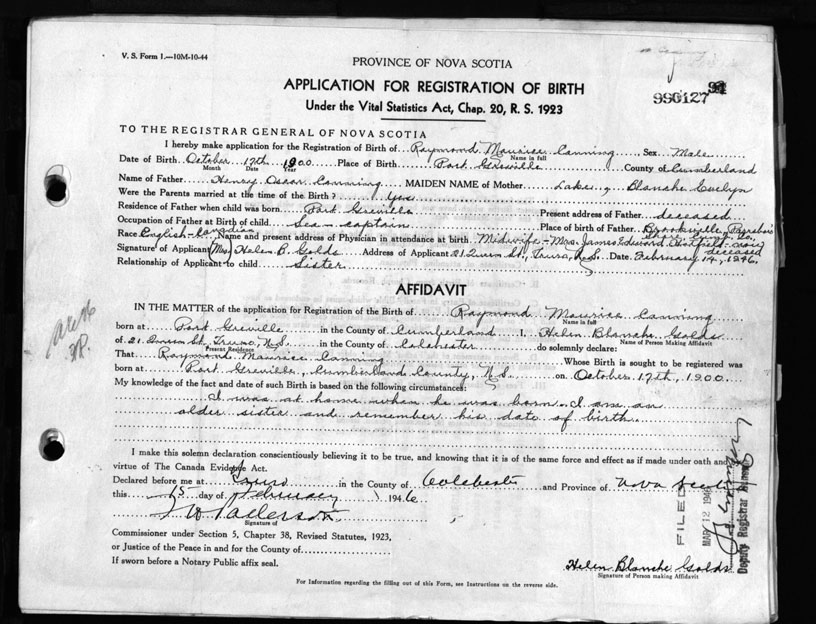 V. S. Form 1.—10M-10-44
PROVINCE OF NOVA SCOTIA
APPLICATION FOR REGISTRATION OF BIRTH
990127 94
Under the Vital Statistics Act, Chap. 20, R. S. 1923
TO THE REGISTRAR GENERAL OF NOVA SCOTIA
I hereby make application for the Registration of Birth of Raymond Maurice Canning, Sex Male
Name in full
Date of Birth October 17th 1900 Place of Birth Port Greville County of Cumberland
Month Date Year
Name of Father Henry Oscar Canning MAIDEN NAME of Mother Blanche Evelyn
Were the Parents married at the time of the Birth? Yes
Residence of Father when child was born Port Greville Present address of Father deceased
Occupation of Father at Birth of child Sea-captain Place of birth of Father Brookville, Parrsboro
Race English-Canadian Name and present address of Physician in attendance at birth Midwife - Mrs. James Edward Hatfield - deceased
Signature of Applicant (Mrs) Helen B. Golds Address of Applicant 21 Queen St., Truro, N.S. Date February 14, 1946.
Relationship of Applicant to child Sister
AFFIDAVIT
IN THE MATTER of the application for Registration of the Birth of Raymond Maurice Canning
Name in full
born at Port Greville in the County of Cumberland I, Helen Blanche Golds
Name of Person Making Affidavit
of 21 Queen St, Truro, N.S. in the County of Colchester do solemnly declare:
Present Residence
That Raymond Maurice Canning Whose Birth is sought to be registered was
born at Port Greville, Cumberland County, N.S. on October 17th, 1900.
My knowledge of the fact and date of such Birth is based on the following circumstances:
I was at home when he was born. I am an
older sister and remember his date of birth.
I make this solemn declaration conscientiously believing it to be true, and knowing that it is of the same force and effect as if made under oath and by
virtue of The Canada Evidence Act.
Declared before me at Truro in the County of Colchester and Province of Nova Scotia
this 15 day of February 1946
W Patterson
Signature of
Commissioner under Section 5, Chapter 38, Revised Statutes, 1923,
or Justice of the Peace in and for the County of
If sworn before a Notary Public affix seal.
FILED
MAR 12 1946
Deputy Registrar General
Helen Blanche Golds
Signature of Person making Affidavit
For Information regarding the filling out of this Form, see Instructions on the reverse side.